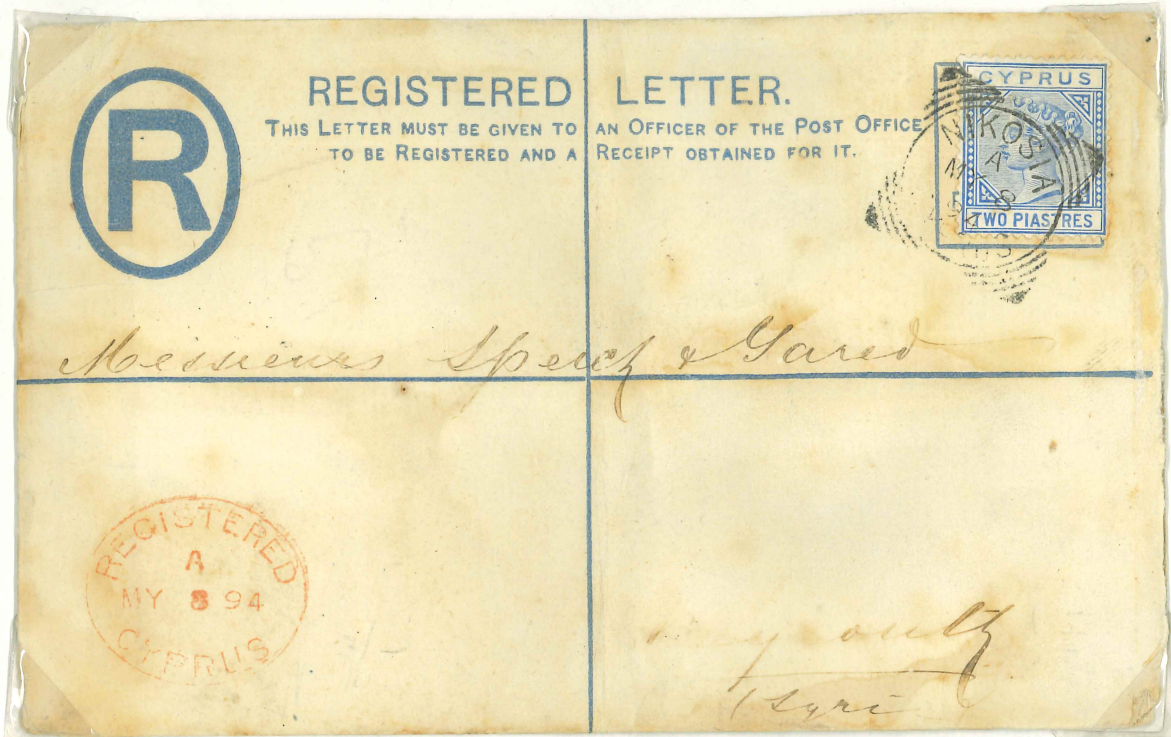 R
REGISTERED LETTER.
THIS LETTER MUST BE GIVEN TO AN OFFICER OF THE POST OFFICE
TO BE REGISTERED AND A RECEIPT OBTAINED FOR IT.
CYPRUS
TWO PIASTRES
NIKOSIA
A
MY 8
94
Messieurs &
REGISTERED
A
MY 8 94
CYPRUS